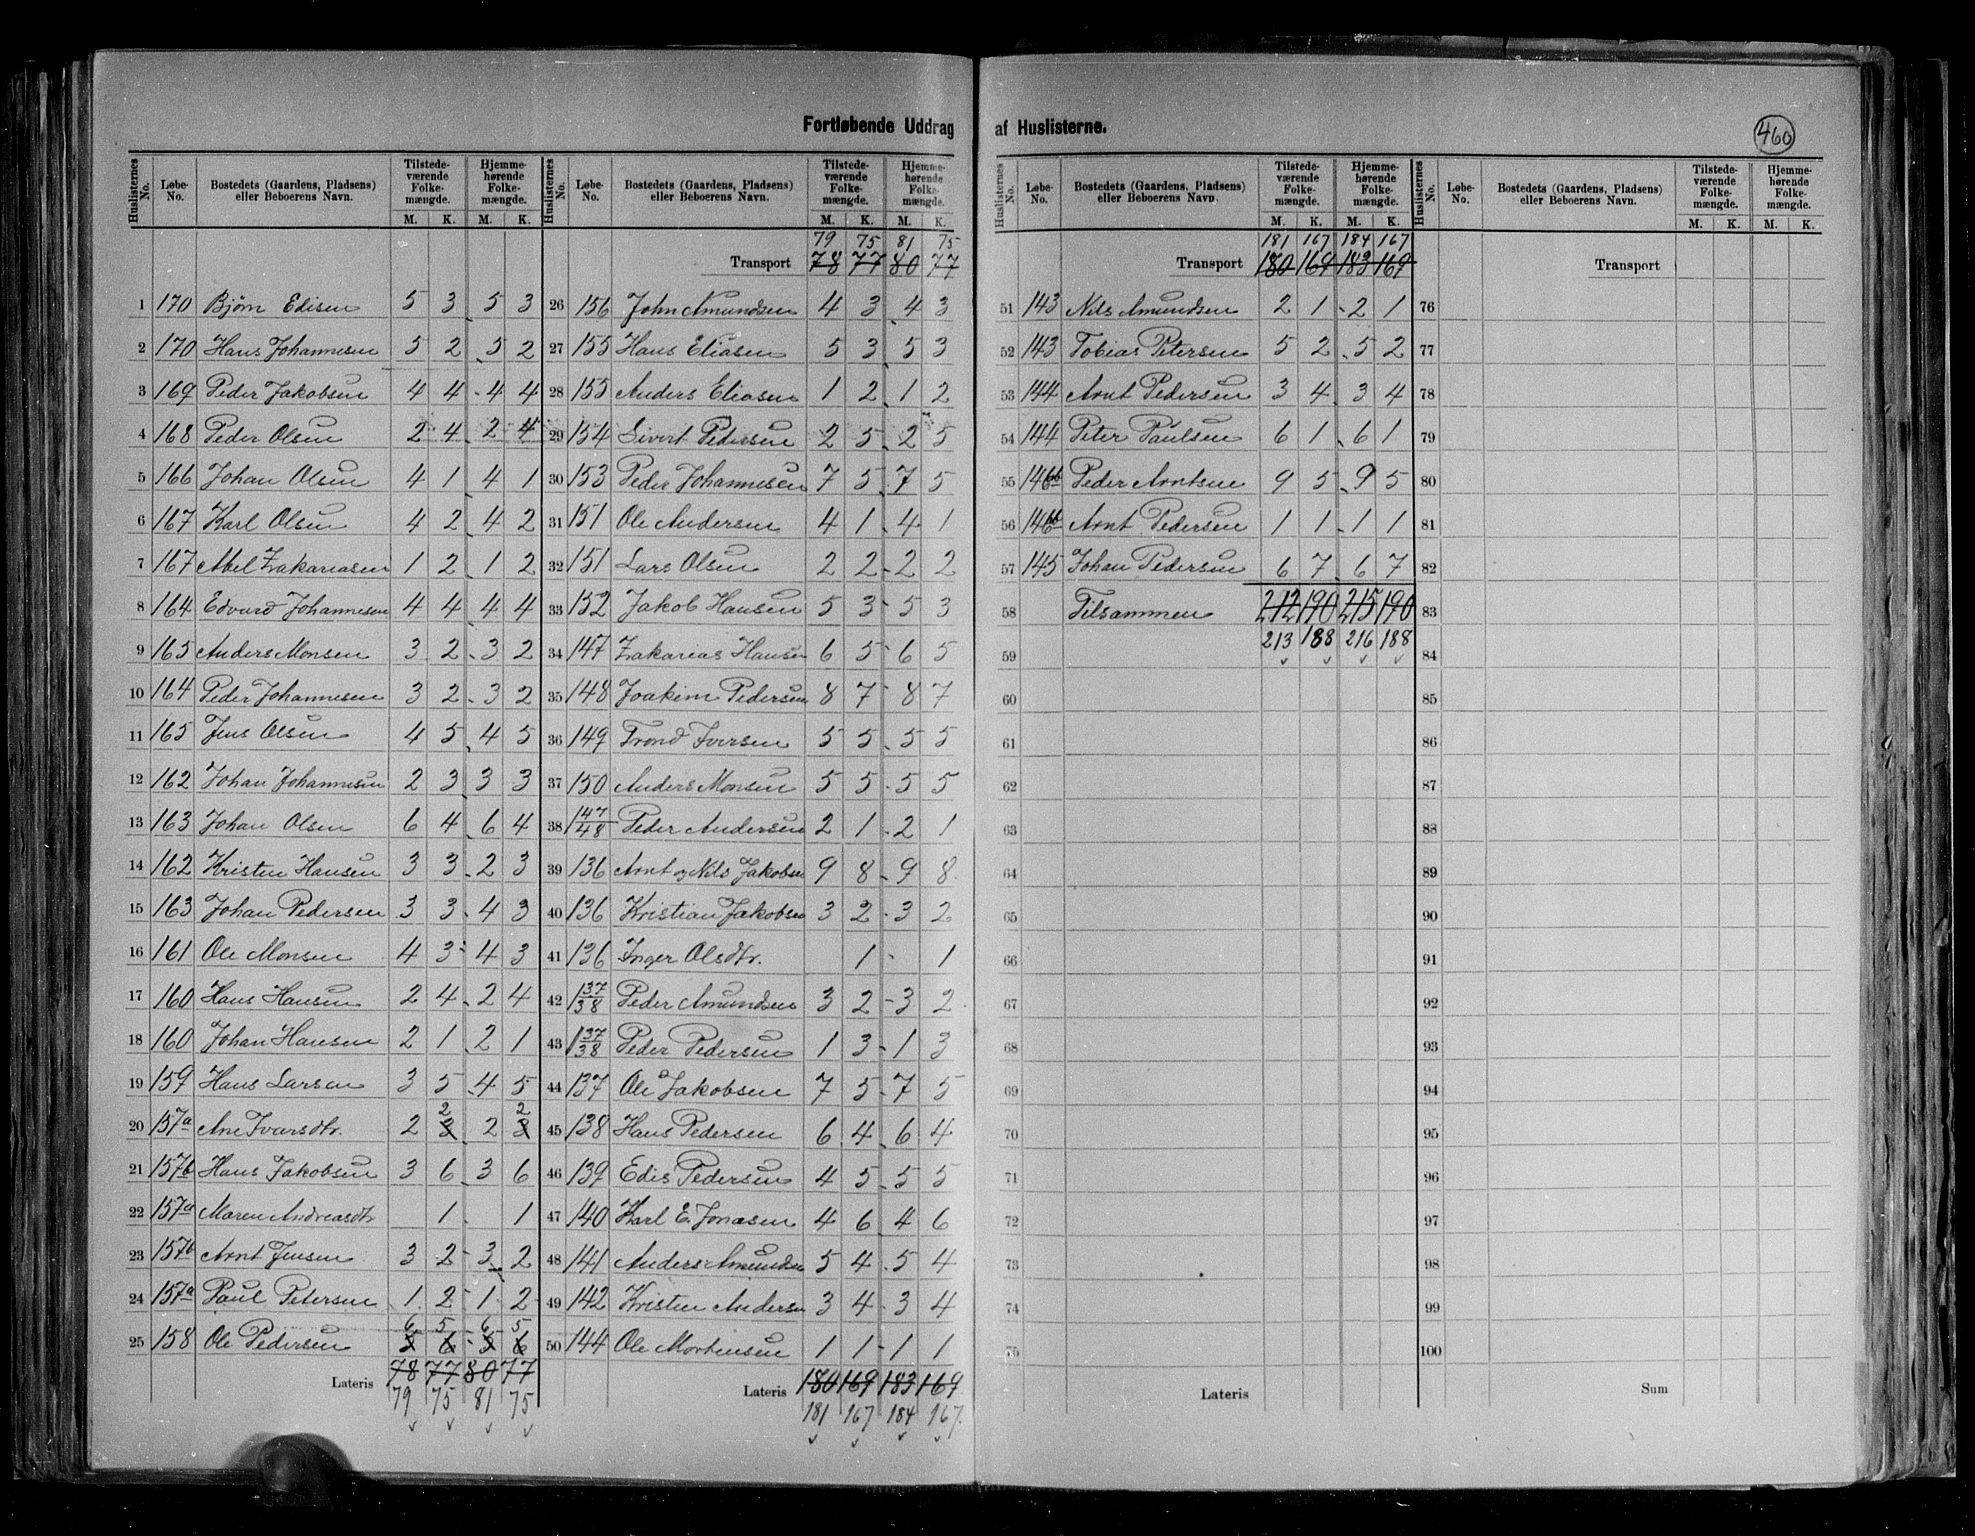 Fortløbende Uddrag af Huslisterne.
460
Huslisternes No. | Løbe-No. | Bostedets (Gaardens, Pladsens) eller Beboerens Navn. | Tilstedeværende Folkemængde. M. K. | Hjemmehørende Folkemængde. M. K.
1 170 Bjørn Edisen 5 3 5 3
2 170 Hans Johannesen 5 2 5 2
3 169 Peder Jakobsen 4 4 4 4
4 168 Peder Olsen 2 4 2 4
5 166 Johan Olsen 4 1 4 1
6 167 Karl Olsen 4 2 4 2
7 167 Abel Zakariasen 1 2 1 2
8 164 Edvard Johannesen 4 4 4 4
9 165 Anders Monsen 3 2 3 2
10 164 Peder Johannesen 3 2 3 2
11 165 Jens Olsen 4 5 4 5
12 162 Johan Johannesen 2 3 3 3
13 163 Johan Olsen 6 4 6 4
14 162 Kristen Hansen 3 3 2 3
15 163 Johan Pedersen 3 3 4 3
16 161 Ole Monsen 4 3 4 3
17 160 Hans Hansen 2 4 2 4
18 160 Johan Hansen 2 1 2 1
19 159 Hans Larsen 3 5 4 5
2 2
20 157a Ane Ivarsdtr. 2 3 2 3
21 157b Hans Jakobsen 3 6 3 6
22 157a Maren Andreasdtr 1 1
23 157b Arnt Jensen 3 2 3 2
24 157a Paul Petersen 1 2 1 2
6 5 6 5
25 158 Ole Pedersen 5 6 5 6
Lateris 78 77 80 77
79 75 81 75
Huslisternes No. | Løbe-No. | Bostedets (Gaardens, Pladsens) eller Beboerens Navn. | Tilstedeværende Folkemængde. M. K. | Hjemmehørende Folkemængde. M. K.
79 75 81 75
Transport 78 77 80 77
26 156 John Amundsen 4 3 4 3
27 155 Hans Eliasen 5 3 5 3
28 155 Anders Eliasen 1 2 1 2
29 154 Sivert Pedersen 2 5 2 5
30 153 Peder Johannesen 7 5 7 5
31 151 Ole Andersen 4 1 4 1
32 151 Lars Olsen 2 2 2 2
33 152 Jakob Hansen 5 3 5 3
34 147 Zakarias Hansen 6 5 6 5
35 148 Joakim Pedersen 8 7 8 7
36 149 Trond Iversen 5 5 5 5
37 150 Anders Monsen 5 5 5 5
38 147/48 Peder Andersen 2 1 2 1
39 136 Arnt og Nils Jakobsen 9 8 9 8
40 136 Kristian Jakobsen 3 2 3 2
41 136 Inger Olsdtr. 1 1
42 137/38 Peder Amundsen 3 2 3 2
43 137/38 Peder Pedersen 1 3 1 3
44 137 Ole Jakobsen 7 5 7 5
45 138 Hans Pedersen 6 4 6 4
46 139 Edis Pedersen 4 5 5 5
47 140 Karl E. Jonasen 4 6 4 6
48 141 Anders Amundsen 5 4 5 4
49 142 Kristen Andersen 3 4 3 4
50 144 Ole Mortensen 1 1 1 1
Lateris 180 169 183 169
181 167 184 167
Huslisternes No. | Løbe-No. | Bostedets (Gaardens, Pladsens) eller Beboerens Navn. | Tilstedeværende Folkemængde. M. K. | Hjemmehørende Folkemængde. M. K.
181 167 184 167
Transport 180 169 183 169
51 143 Nils Amundsen 2 1 2 1
52 143 Tobias Petersen 5 2 5 2
53 144 Arnt Pedersen 3 4 3 4
54 144 Peter Paulsen 6 1 6 1
55 146 Peder Arntsen 9 5 9 5
56 146 Arnt Pedersen 1 1 1 1
57 145 Johan Pedersen 6 7 6 7
58 Tilsammen 212 190 215 190
213 188 216 188
59
60
61
62
63
64
65
66
67
68
69
70
71
72
73
74
75
Lateris
Huslisternes No. | Løbe-No. | Bostedets (Gaardens, Pladsens) eller Beboerens Navn. | Tilstedeværende Folkemængde. M. K. | Hjemmehørende Folkemængde. M. K.
Transport
76
77
78
79
80
81
82
83
84
85
86
87
88
89
90
91
92
93
94
95
96
97
98
99
100
Sum